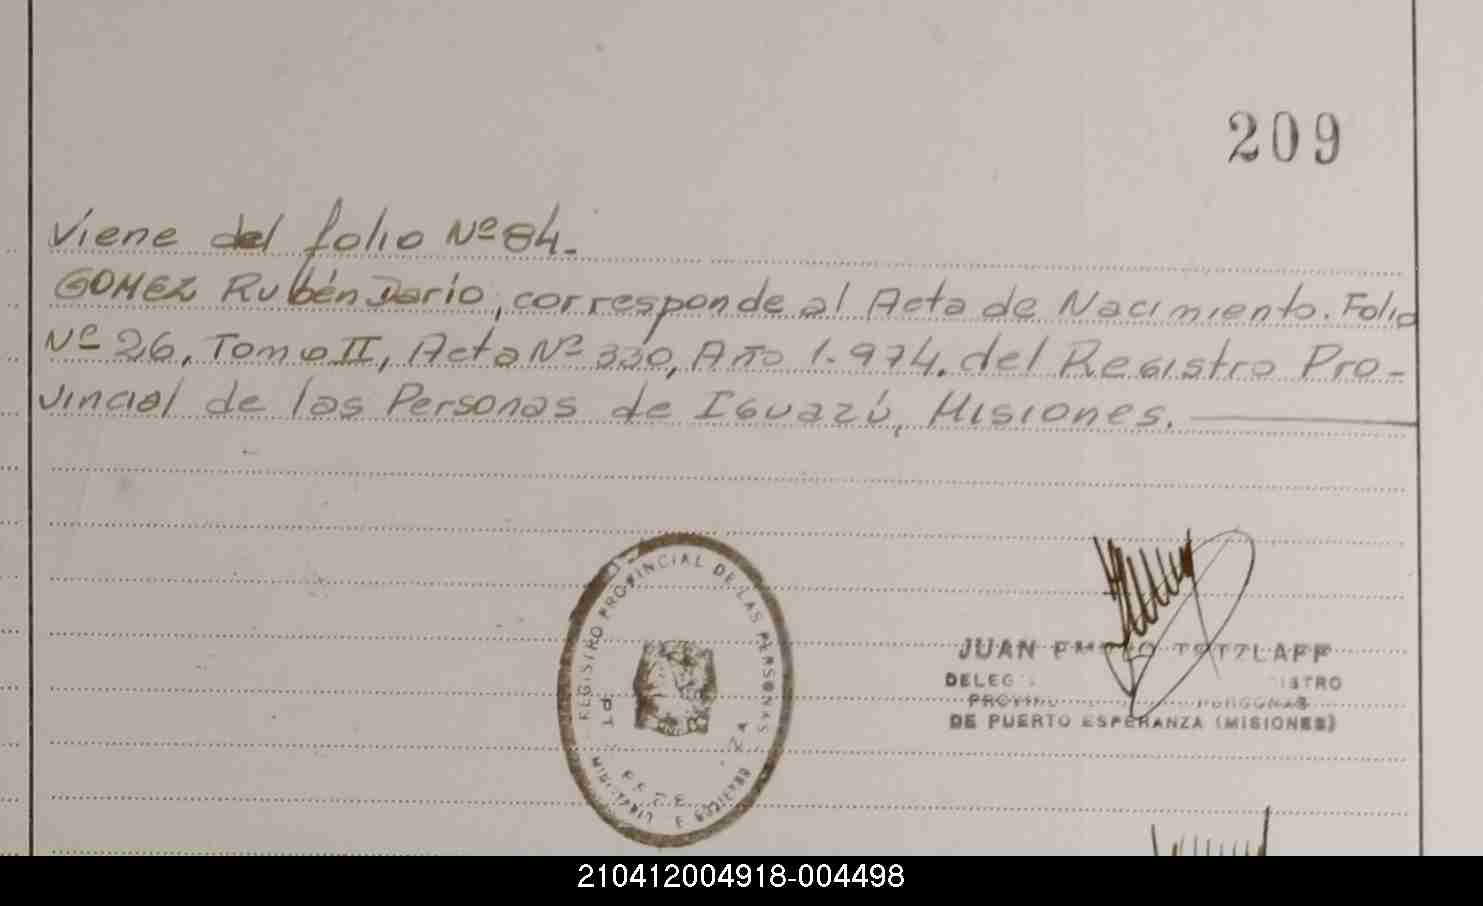 209
Viene del folio Nº 84.
GOMEZ Rubén Dario, corresponde al Acta de Nacimiento. Folio
Nº 26, Tomo II, Acta Nº 330, Año 1.974. del Registro Pro-
vincial de las Personas de Iguazú, Misiones.
REGISTRO PROVINCIAL DE LAS PERSONAS
JUAN TETZLAFF
DE PUERTO ESPERANZA (MISIONES)
210412004918-004498